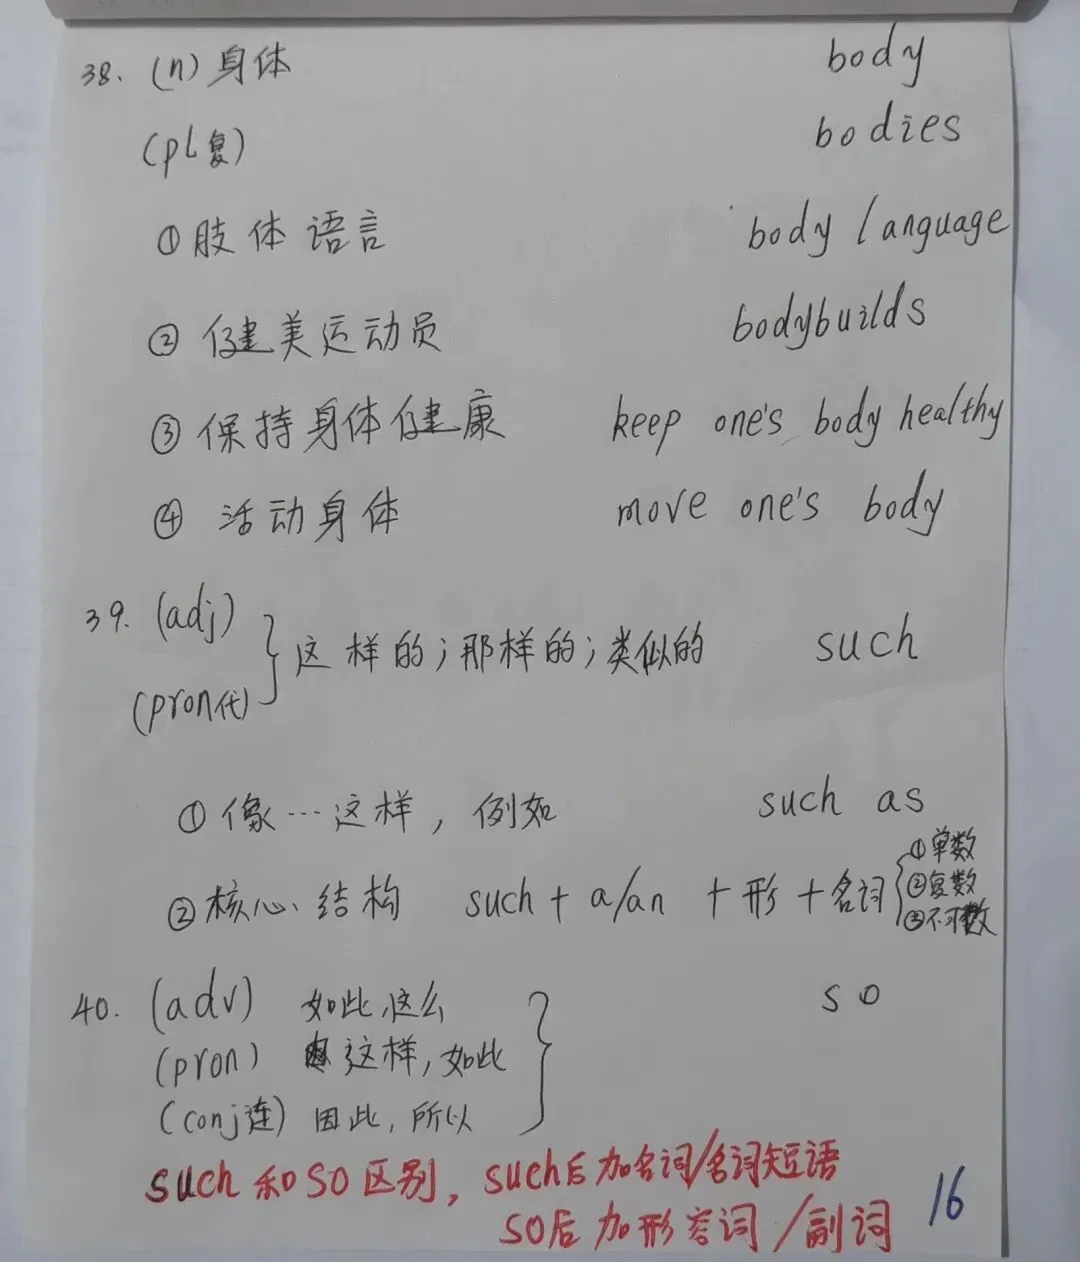 38. (n) 身体 body
(pl复) bodies
① 肢体语言 body language
② 健美运动员 bodybuilds
③ 保持身体健康 keep one's body healthy
④ 活动身体 move one's body
39. (adj)
(pron代) } 这样的;那样的;类似的 such
① 像…这样,例如 such as
② 核心结构 such + a/an + 形 + 名词 { ①单数
②复数
③不可数
40. (adv) 如此,这么 } so
(pron) 这样,如此
(conj连) 因此,所以
such 和 so 区别,such后加名词/名词短语
so后加形容词/副词
16